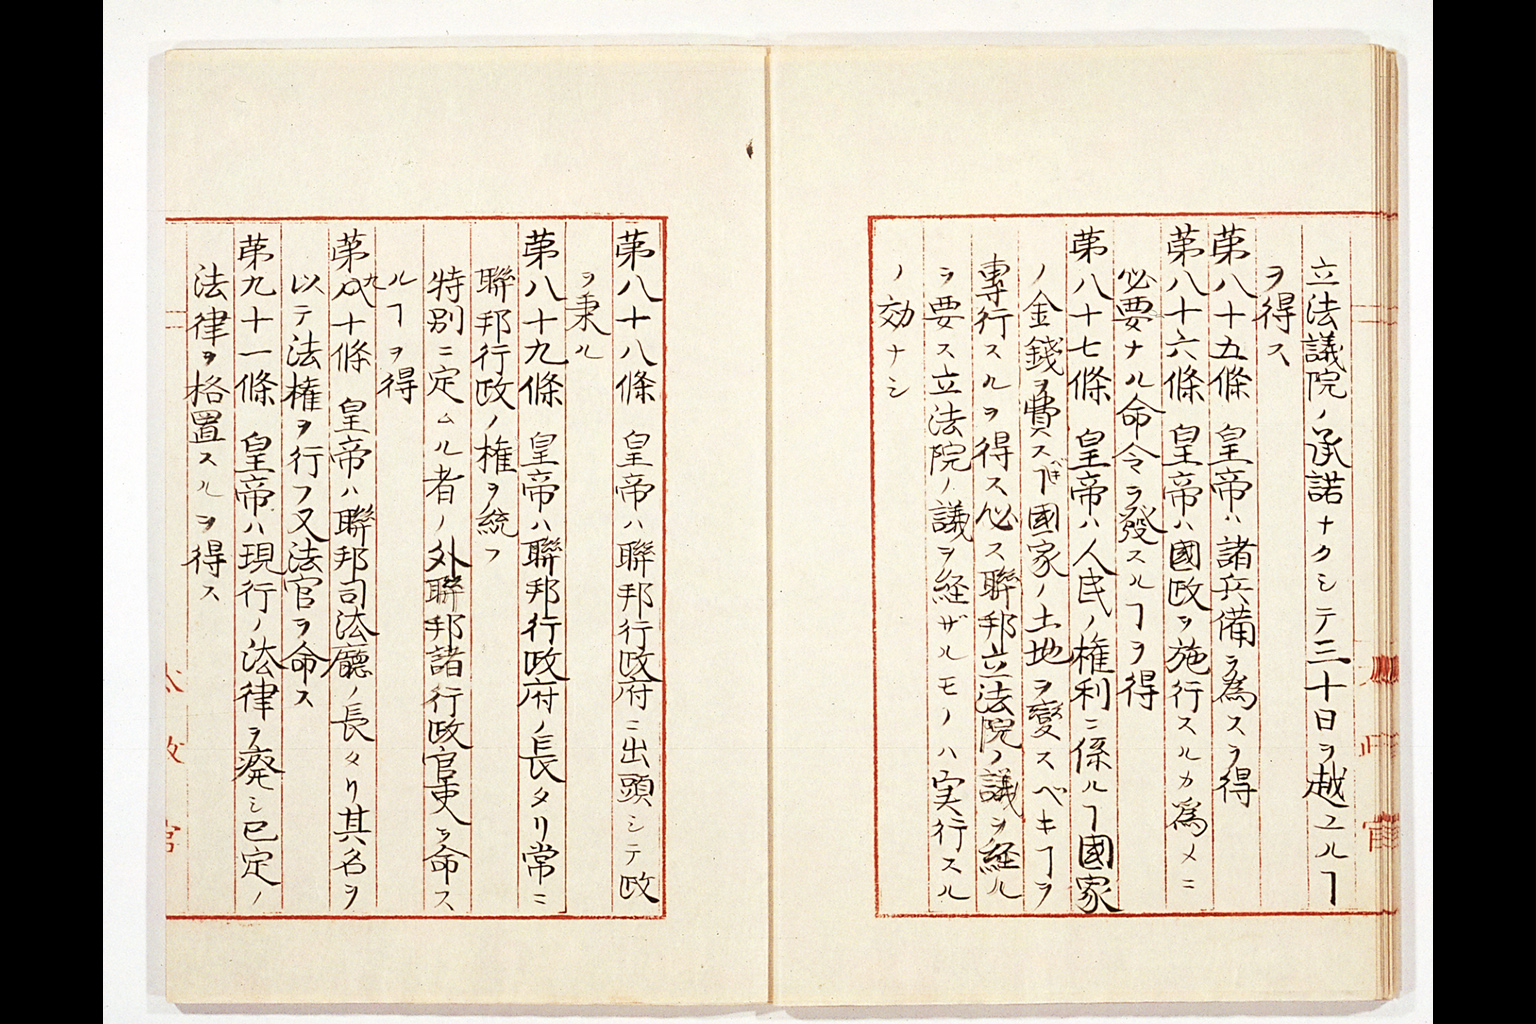 立法議院ノ承諾ナクシテ三十日ヲ越ユルヿ
ヲ得ス
第八十五條 皇帝ハ諸兵備ヲ為スヲ得
第八十六條 皇帝ハ國政ヲ施行スルカ爲メニ
必要ナル命令ヲ發スルヿヲ得
第八十七條 皇帝ハ人民ノ權利ニ係ルヿ國家
ノ金錢ヲ費スベキヿ國家ノ土地ヲ變スベキヿヲ
專行スルヲ得ス必ス聯邦立法院ノ議ヲ経ル
ヲ要ス立法院ノ議ヲ経ザルモノハ実行スル
ノ効ナシ
第八十八條 皇帝ハ聯邦行政府ニ出頭シテ政
ヲ秉ル
第八十九條 皇帝ハ聯邦行政府ノ長タリ常ニ
聯邦行政ノ権ヲ統フ
特別ニ定ムル者ノ外聯邦諸行政官吏ヲ命ス
ルヿヲ得
第九十條 皇帝ハ聯邦司法廳ノ長タリ其名ヲ
以テ法権ヲ行フ又法官ヲ命ス
第九十一條 皇帝ハ現行ノ法律ヲ癈シ已定ノ
法律ヲ格置スルヲ得ス